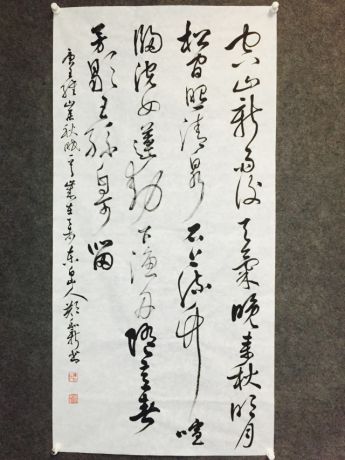 空山新雨後天氣晚來秋明月
松間照清泉石上流竹喧
歸浣女蓮動下漁舟隨意春
芳歇王孫自可留
唐王維山居秋暝 東白山人